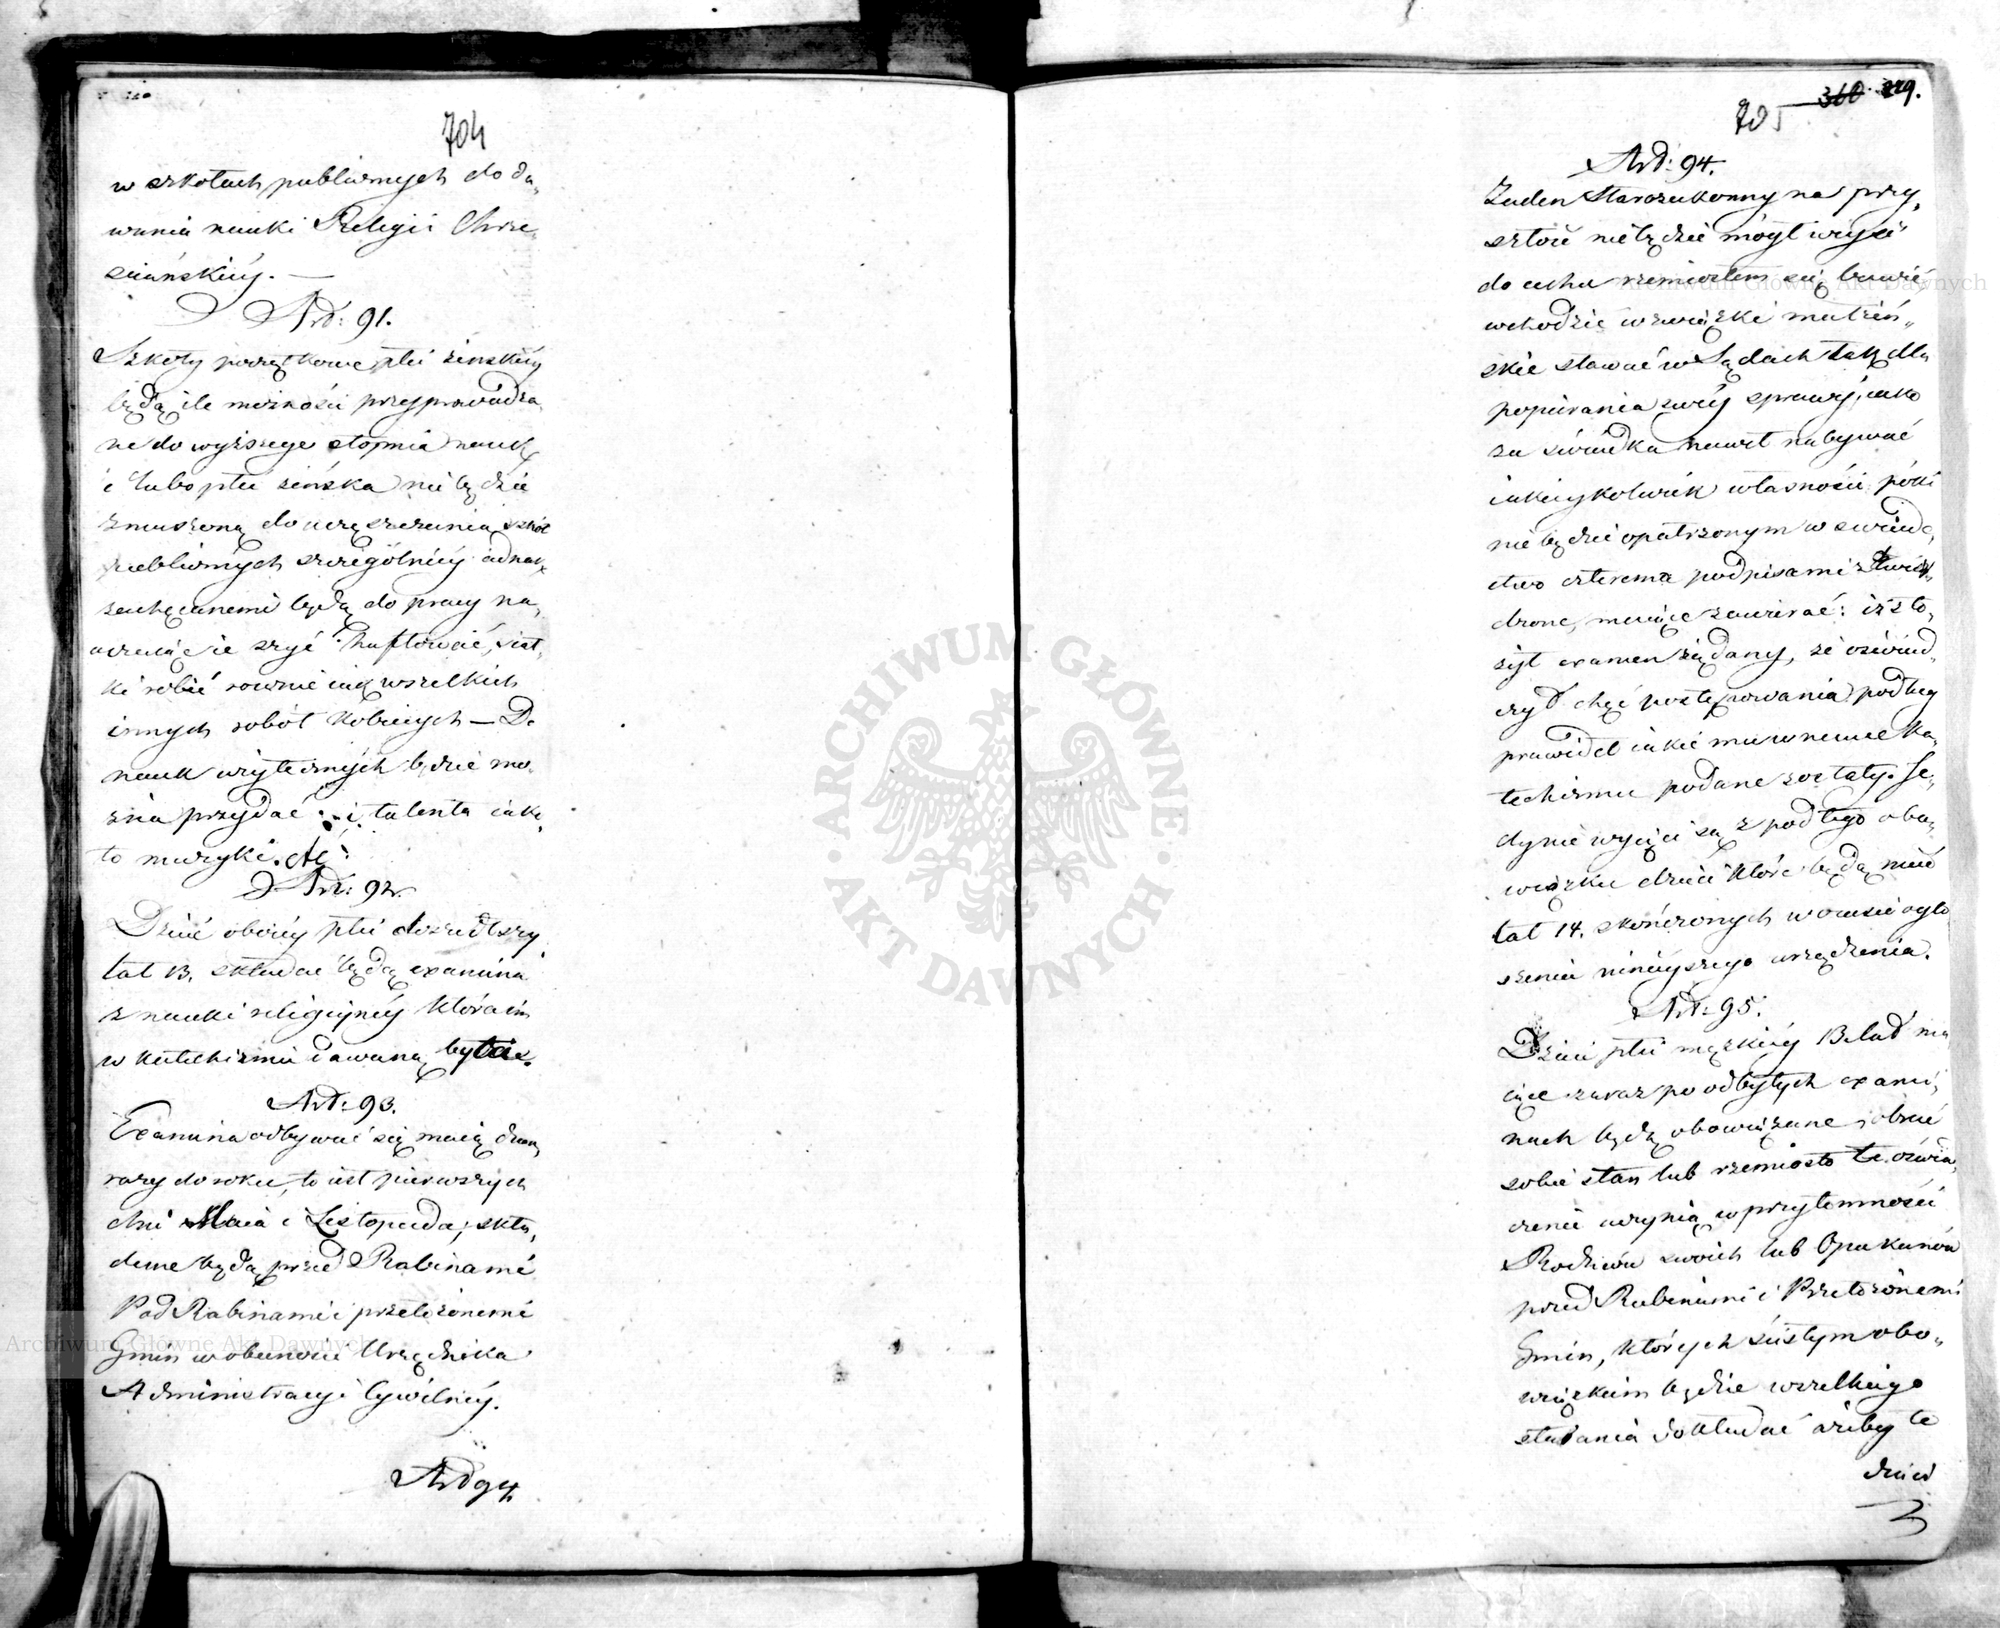 704
w szkołach publicznych do da„
wania nauki Religii Chrze„
sciańskiey. —
Art: 91.
Szkoły początkowe płci żeńskiey
będą ile możności przyprowadza„
ne do wyższego stopnia nauk,
i lubo płeć żeńska nie będzie
zmuszoną do uczęszczania szkół
publicznych szczególniey iednak
zachęcanemi będą do pracy na„
uczaiąc ie szyć haftować, siat„
ki robić rownie iak wszelkich
innych robót kobiecych — Do
nauk użytecznych będzie mo„
żna przydać i talenta iako„
to muzyki. etc:
Art: 92.
Dzieci oboiey płci doszedłszy
lat 13. składać będą examina
z nauki religijney która im
w katechizmie dawaną była.
Art: 93.
Examina odbywać się maią dwa
razy do roku, to iest pierwszych
dni Maia i Listopada; skła„
dane będą przed Rabinami
Pod Rabinami i przełożonemi
Gmin w obecności Urzędnika
Administracyi Cywilney.
Art 94.
705 360 229.
Art: 94.
Żaden Starozakonny na przy„
szłość nie będzie mógł wejść
do cechu rzemiosłem się bawić
wchodzić w związki małżeń„
skie stawać w Sądach tak dla
popierania swey sprawy, iako
za świadka nawet nabywać
iakieykolwiek własności póki
nie będzie opatrzonym w świade„
ctwo czterema podpisami stwier„
dzone, maiące zawierać: iż zło„
żył examen żądany, że oświad„
czył chęć postępowania podług
prawideł iakie mu w nauce Ka„
techizmu podane zostały. Je„
dynie wyięci są z pod tego obo„
wiązku dzieci które będą mieć
lat 14. skończonych w czasie ogło
szenia ninieyszego urządzenia.
Art: 95.
Dzieci płci męzkiéy 13. lat ma
iące zaraz po odbytych exami„
nach będą obowiązane obrać
sobie stan lub rzemiosło te oświad„
czenie uczynią w przytomności
Rodziców swoich lub Opiekunów
przed Rabinami i Przełożonemi
Gmin, których ścisłym obo„
wiązkiem będzie wszelkiego
starania dokładać ażeby te
dzieci
Archiwum Główne Akt Dawnych
Archiwum Główne Akt Dawnych
ARCHIWUM GŁÓWNE · AKT DAWNYCH ·